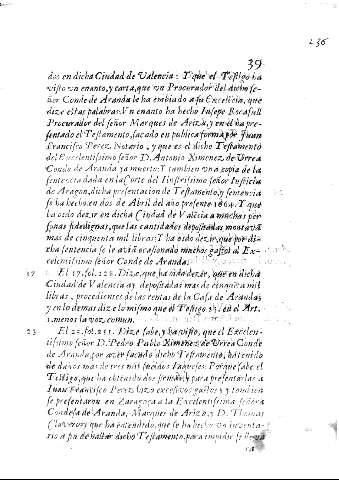 236
39
dos en dicha Ciudad de Valencia: Y que el Testigo ha
visto un enanto, y carta, que un Procurador del dicho se-
ñor Conde de Aranda le ha embiado a su Excelēcia, que
dize estas palabras: Vn enanto ha hecho Iusepe Rocafull
Procurador del señor Marques de Ariza, y en el ha pre-
sentado el Testamento, sacado en publica forma por Juan
Francisco Perez Notario, y que es el dicho Testamento
del Excelentissimo señor D. Antonio Ximenez de Vrrea
Conde de Aranda ya muerto: Y tambien una copia de la
sentencia dada en la Corte del Ilustrissimo señor Iusticia
de Aragon, dicha presentacion de Testamento, y sentencia
se ha hecho en dos de Abril del año presente 1664. Y que
ha oido dezir en dicha Ciudad de Valēcia a muchas per-
sonas fidedignas, que las cantidades depositadas montavā
mas de cinquenta mil libras: Y ha oido dezir, que por di-
cha sentencia se le avià ocasionado muchos gastos al Ex-
celentissimo señor Conde de Aranda.
17 El 17. fol. 228. Dize, que ha oido dezir, que en dicha
Ciudad de Valencia ay depositadas mas de cinquēta mil
libras, procedientes de las rentas de la Casa de Aranda,
y en lo demas dize lo mismo que el Testigo 15. en el Art.
1. menos la voz comun.
23 El 22. fol. 251. Dize sabe, y ha visto, que el Excelen-
tissimo señor D. Pedro Pablo Ximenez de Vrrea Conde
de Aranda, por aver sacado dicho Testamento, ha tenido
de daños mas de tres mil sueldos Iaqueses. Porque sabe el
Testigo, que ha obtenido dos firmas, y para presentarlas a
Iuan Francisco Perez hizo excessivos gastos; y tambien
se presentaron en Zaragoça a la Excelentissima señora
Condesa de Aranda, Marques de Ariza, y D. Thomas
Claveror; y que ha entendido, que se ha hecho un inventa-
rio a fin de hallar dicho Testamento, para impedir se
ra